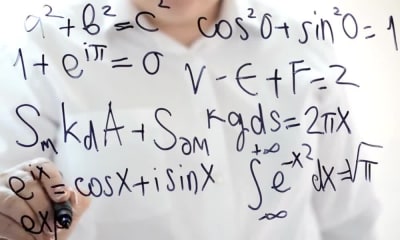 a²+b²=c² cos²0+sin²0=1
1+e^iπ=0 V-E+F=2
S_m kdA+S_∂M kgds=2πX
e^ix=cosx+isinx ∫_∞^+∞ e^-x² dx=√π
exp